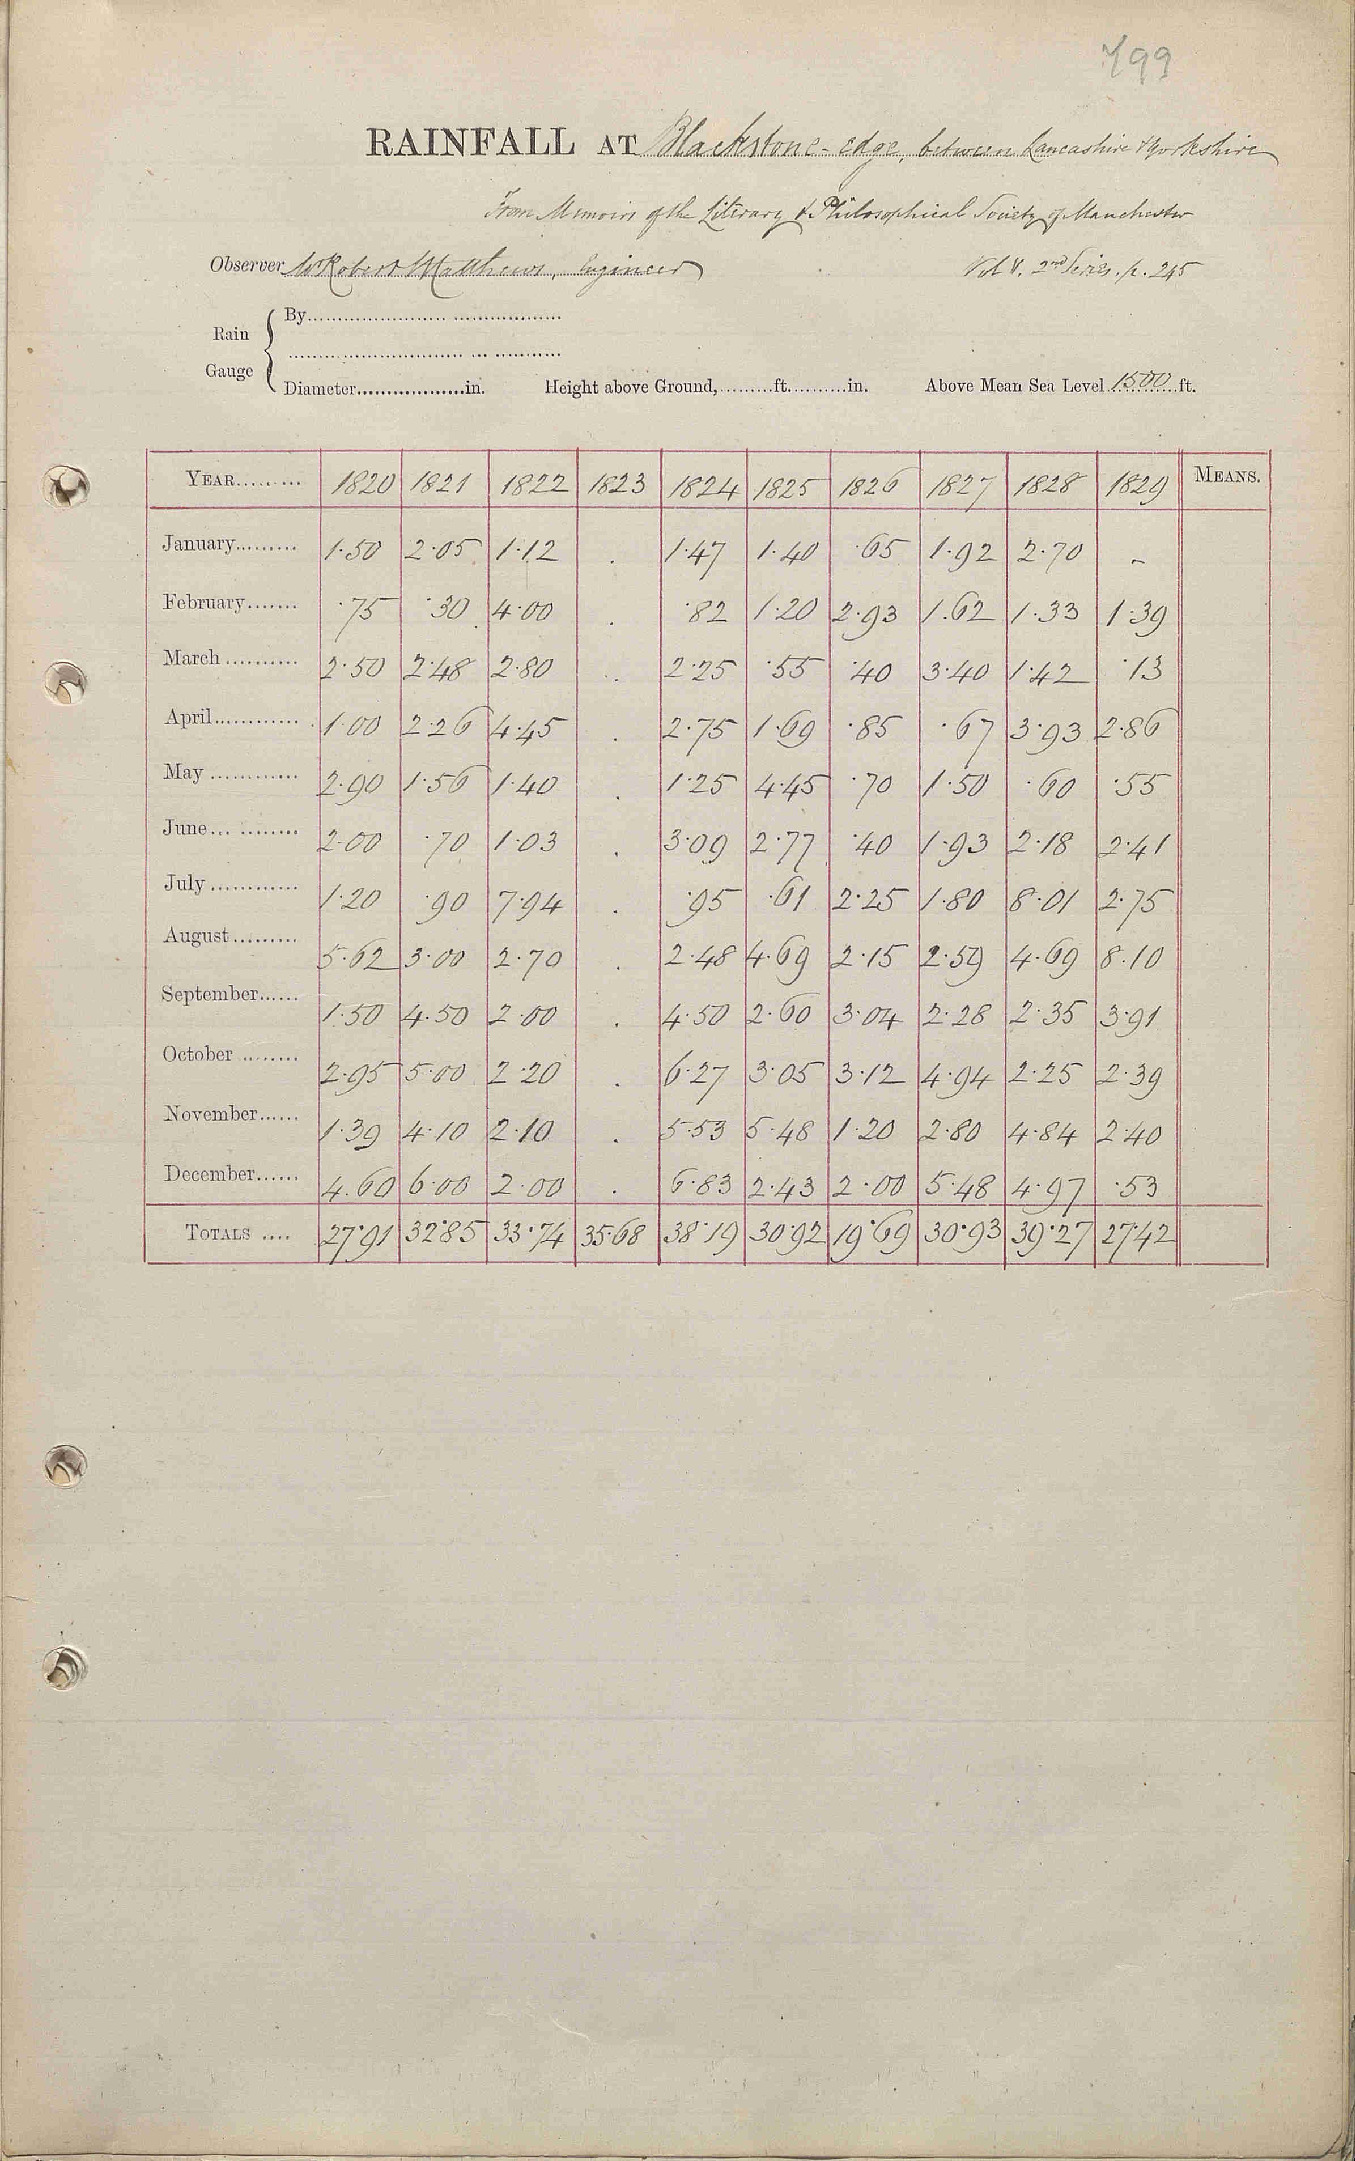 499
RAINFALL AT Blackstone-edge, between Lancashire & Yorkshire
From Memoirs of the Literary & Philosophical Society of Manchester
Observer Mr Robert Matthews, Engineer Vol V. 2nd Series. p. 245
Rain Gauge
By
Diameter in. Height above Ground, ft. in. Above Mean Sea Level 1500 ft.
YEAR 1820 1821 1822 1823 1824 1825 1826 1827 1828 1829 MEANS.
January 1.50 2.05 1.12 . 1.47 1.40 .65 1.92 2.70 -
February .75 .30 4.00 . .82 1.20 2.93 1.62 1.33 1.39
March 2.50 2.48 2.80 . 2.25 .55 .40 3.40 1.42 .13
April 1.00 2.26 4.45 . 2.75 1.69 .85 .67 3.93 2.86
May 2.90 1.56 1.40 . 1.25 4.45 .70 1.50 .60 .55
June 2.00 .70 1.03 . 3.09 2.77 .40 1.93 2.18 2.41
July 1.20 .90 7.94 . .95 .61 2.25 1.80 8.01 2.75
August 5.62 3.00 2.70 . 2.48 4.69 2.15 2.59 4.69 8.10
September 1.50 4.50 2.00 . 4.50 2.60 3.04 2.28 2.35 3.91
October 2.95 5.00 2.20 . 6.27 3.05 3.12 4.94 2.25 2.39
November 1.39 4.10 2.10 . 5.53 5.48 1.20 2.80 4.84 2.40
December 4.60 6.00 2.00 . 6.83 2.43 2.00 5.48 4.97 .53
TOTALS 27.91 32.85 33.74 35.68 38.19 30.92 19.69 30.93 39.27 27.42